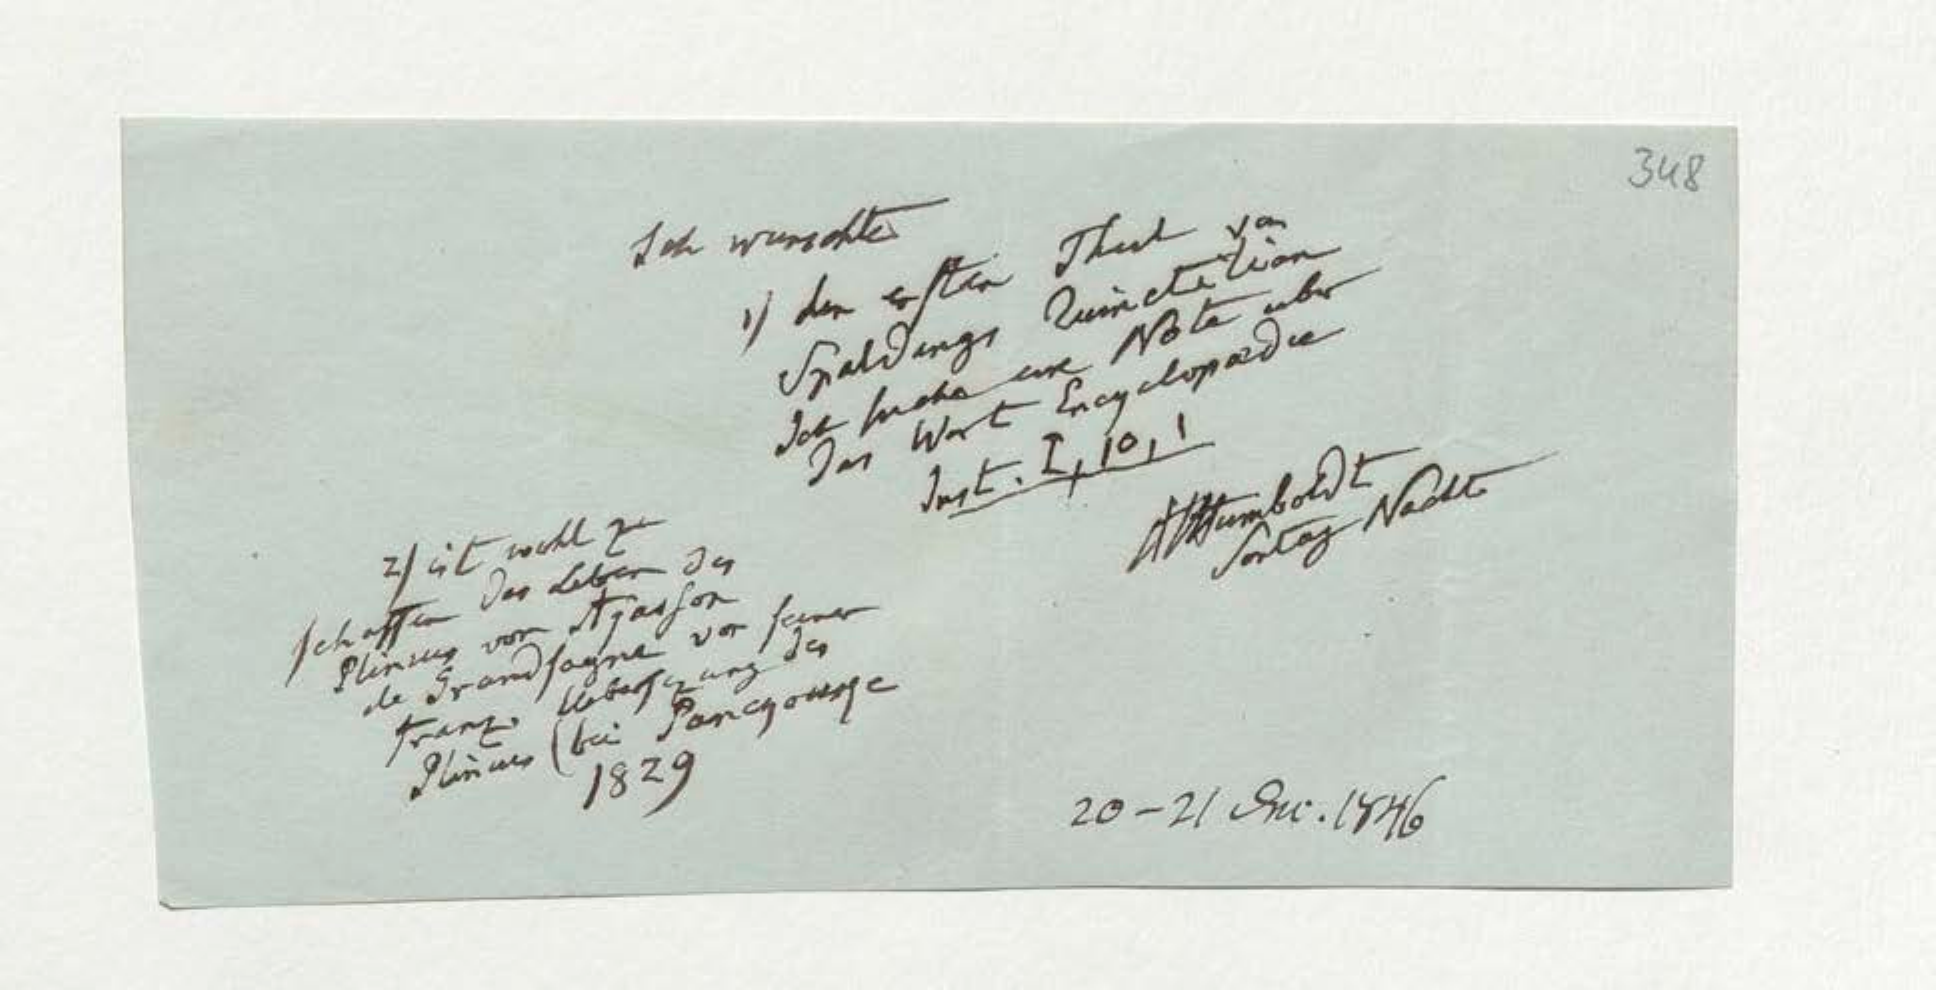 348
Ich wunschte
1) den ersten Theil von
Spaldings Quinctilian
Ich suche eine Note uber
das Wort Encyclopædie
Inst. I, 10, 1
AlHumboldt
Sontag Nachts
2) ist wohl zu
schaffen das Leben des
Plinius von Ajasson
de Grandsagne vor seiner
franz. Uebersezung des
Plinius (bei Pancgouque
1829
20–21 Dec. 1846